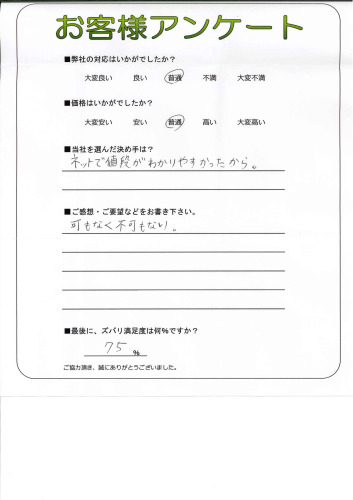 お客様アンケート
■弊社の対応はいかがでしたか？
大変良い 良い 普通 不満 大変不満
■価格はいかがでしたか？
大変安い 安い 普通 高い 大変高い
■当社を選んだ決め手は？
ネットで値段がわかりやすかったから。
■ご感想・ご要望などをお書き下さい。
可もなく不可もない。
■最後に、ズバリ満足度は何%ですか？
75 %
ご協力頂き、誠にありがとうございました。